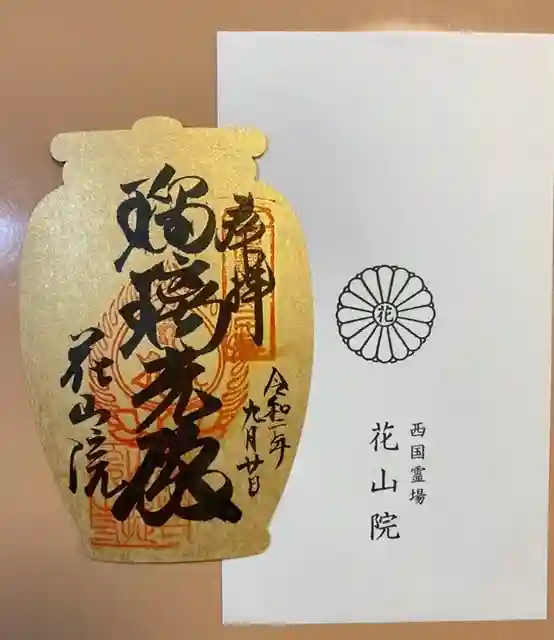 奉拝
令和二年
九月廿日
瑠璃光殿
花山院
花
西国霊場
花山院